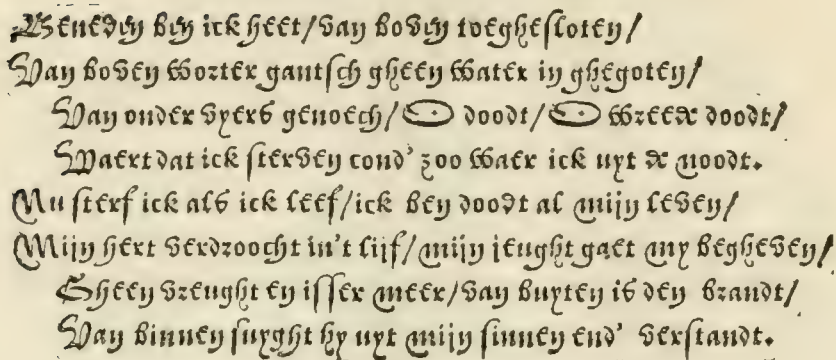 Beneden ben ick heet/van boven toeghesloten/
Van boven wozter gantsch gheen water in ghegoten/
Van onder vyers genoech/O doodt/O wzeede doodt/
Waert dat ick sterven cond' zoo waer ick uyt de noodt.
Nu sterf ick als ick leef/ick ben doodt al mijn leven/
Mijn hert verdzoocht in't lijf/mijn jeught gaet my begheven/
Gheen vzeught en isser meer/van buyten is den bzandt/
Van binnen suyght hy uyt mijn sinnen end' verstandt.